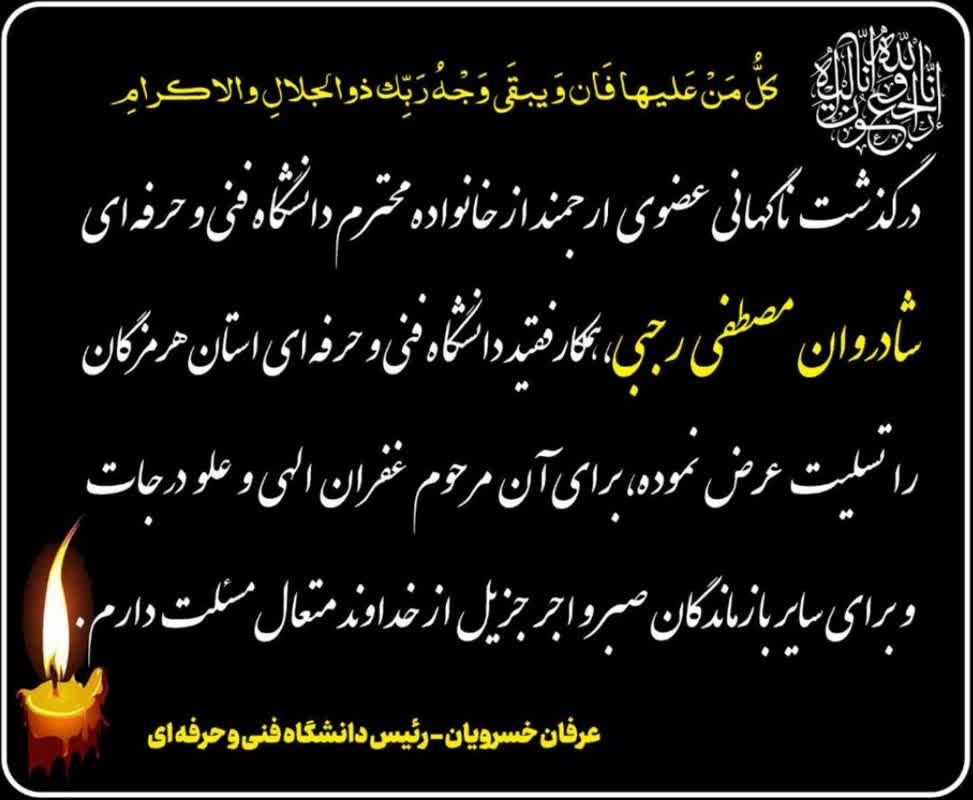 انا لله و انا الیه راجعون
كلُّ مَنْ عَليها فَان وَيبقَى وَجْهُ رَبِّك ذوالجلالِ والاكرامِ
درگذشت ناگهانی عضوی ارجمند از خانواده محترم دانشگاه فنی و حرفه ای
شادروان مصطفی رجبی، همکار فقید دانشگاه فنی و حرفه ای استان هرمزگان
را تسلیت عرض نموده، برای آن مرحوم غفران الهی و علو درجات
و برای سایر بازماندگان صبر و اجر جزیل از خداوند متعال مسئلت دارم.
عرفان خسرویان - رئیس دانشگاه فنی و حرفه ای